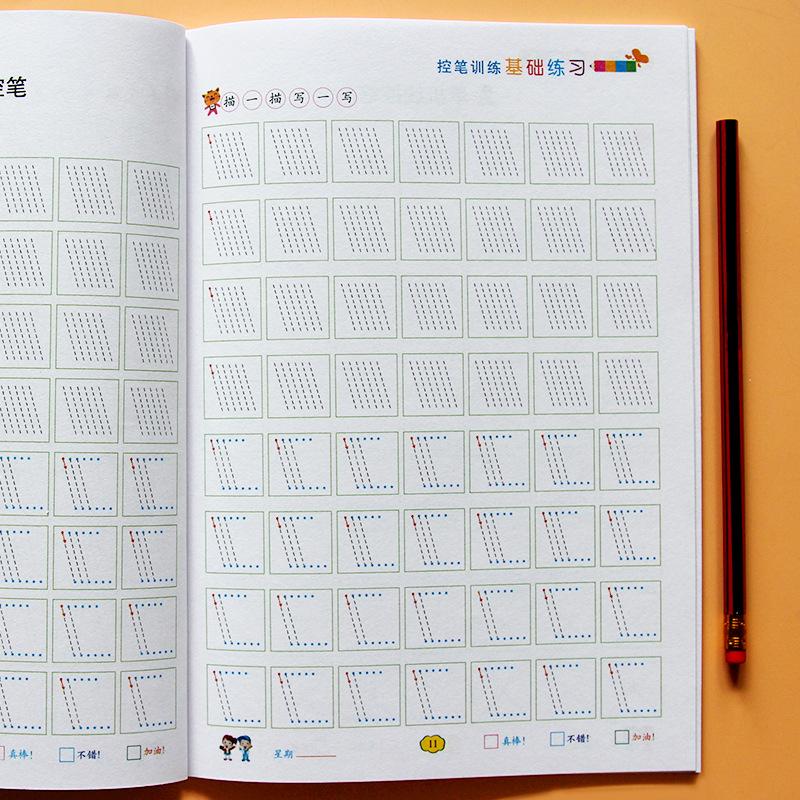 控笔
真棒! 不错! 加油!
控笔训练基础练习
描一描写一写
星期 11 真棒! 不错! 加油!